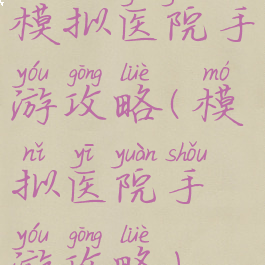 模拟医院手
yóu gōng lüè mó
游攻略(模
nǐ yī yuàn shǒu
拟医院手
yóu gōng lüè
游攻略)